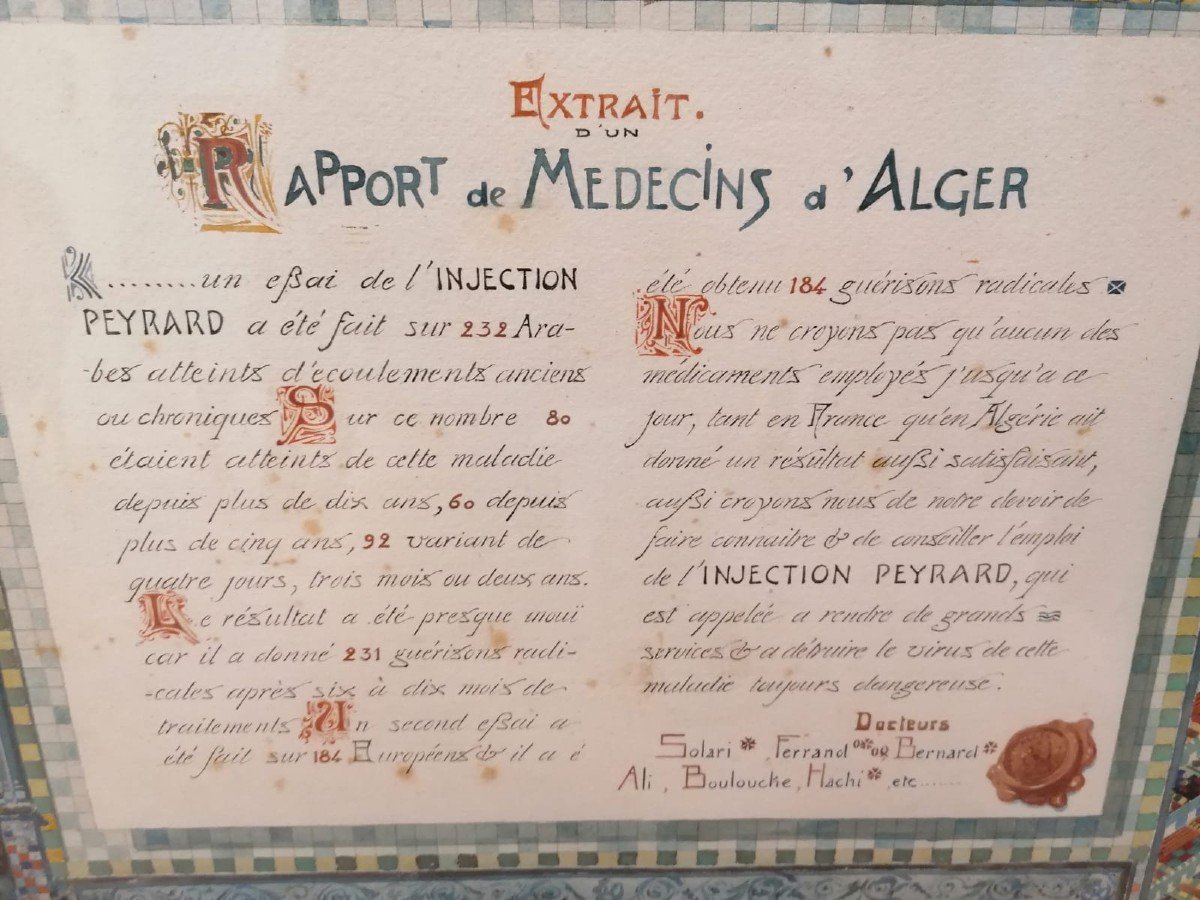 EXTRAIT.
D'UN
RAPPORT de MEDECINS d'ALGER
........un eßai de l'INJECTION
PEYRARD a été fait sur 232 Ara-
-bes atteints d'ecoulements anciens
ou chroniques Sur ce nombre 80
étaient atteints de cette maladie
depuis plus de dix ans, 60 depuis
plus de cinq ans, 92 variant de
quatre jours, trois mois ou deux ans.
Le résultat a été presque inouï
car il a donné 231 guérisons radi-
-cales après six à dix mois de
traitements Un second eßai a
été fait sur 184 Européens & il a é
été obtenu 184 guérisons radicales
Nous ne croyons pas qu'aucun des
médicaments employés jusqu'a ce
jour, tant en France qu'en Algérie ait
donné un résultat außi satisfaisant,
außi croyons nous de notre devoir de
faire connaitre & de conseiller l'emploi
de l'INJECTION PEYRARD, qui
est appelée a rendre de grands
services & a détruire le virus de cette
maladie toujours dangereuse.
Docteurs
Solari Ferrand Bernard
Ali, Boulouche, Hachi, etc.......